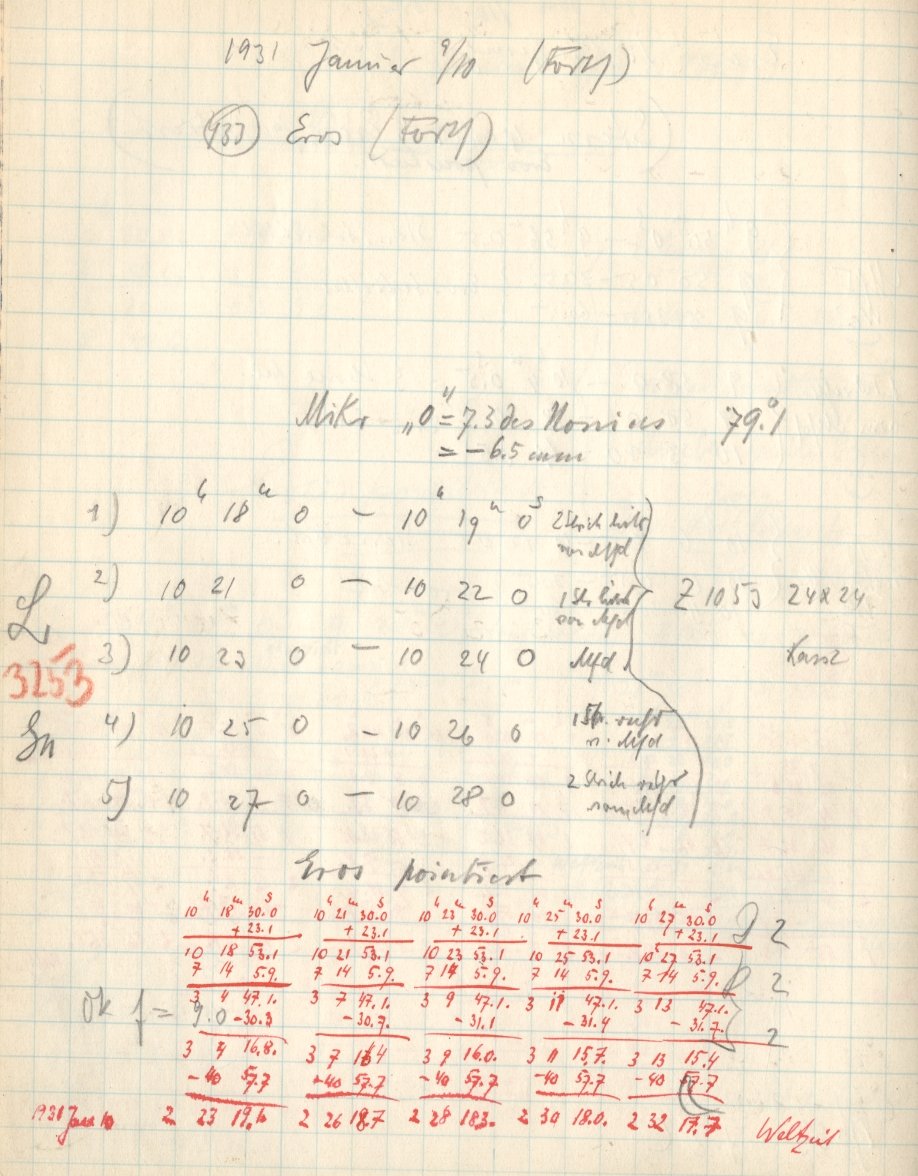 1931 Januar 9/10 (Forts)
433 Eros (Forts)
Mikr „0" = 7.3 des Nonius 79.°1
= -6.5 mm
1) 10h 18m 0 — 10h 19m 0s 2 Strich links
vom Mfd
2) 10 21 0 — 10 22 0 1 Str links
vom Mfd
Z 1053 24x24
L
3) 10 23 0 — 10 24 0 Mfd
3253
4) 10 25 0 — 10 26 0 1 Str. rechts
v. Mfd
5) 10 27 0 — 10 28 0 2 Strich rechts
vom Mfd
Eros pointiert
10h 18m 30.0s 10h 21m 30.0s 10h 23m 30.0s 10h 25m 30.0s 10h 27m 30.0s
+ 23.1 + 23.1 + 23.1 + 23.1 + 23.1 2
10 18 53.1 10 21 53.1 10 23 53.1 10 25 53.1 10 27 53.1
7 14 5.9. 7 14 5.9. 7 14 5.9. 7 14 5.9. 7 14 5.9. 2
3 4 47.1. 3 7 47.1. 3 9 47.1. 3 11 47.1. 3 13 47.1.
Ok f = 9.0 -30.3 -30.7. -31.1 -31.4 -31.7. 2
3 4 16.8. 3 7 16.4 3 9 16.0. 3 11 15.7. 3 13 15.4
-40 57.7 -40 57.7 -40 57.7 -40 57.7 -40 57.7
1931 Jan 10 2 23 19.1 2 26 18.7 2 28 18.3. 2 30 18.0. 2 32 17.7 Weltzeit